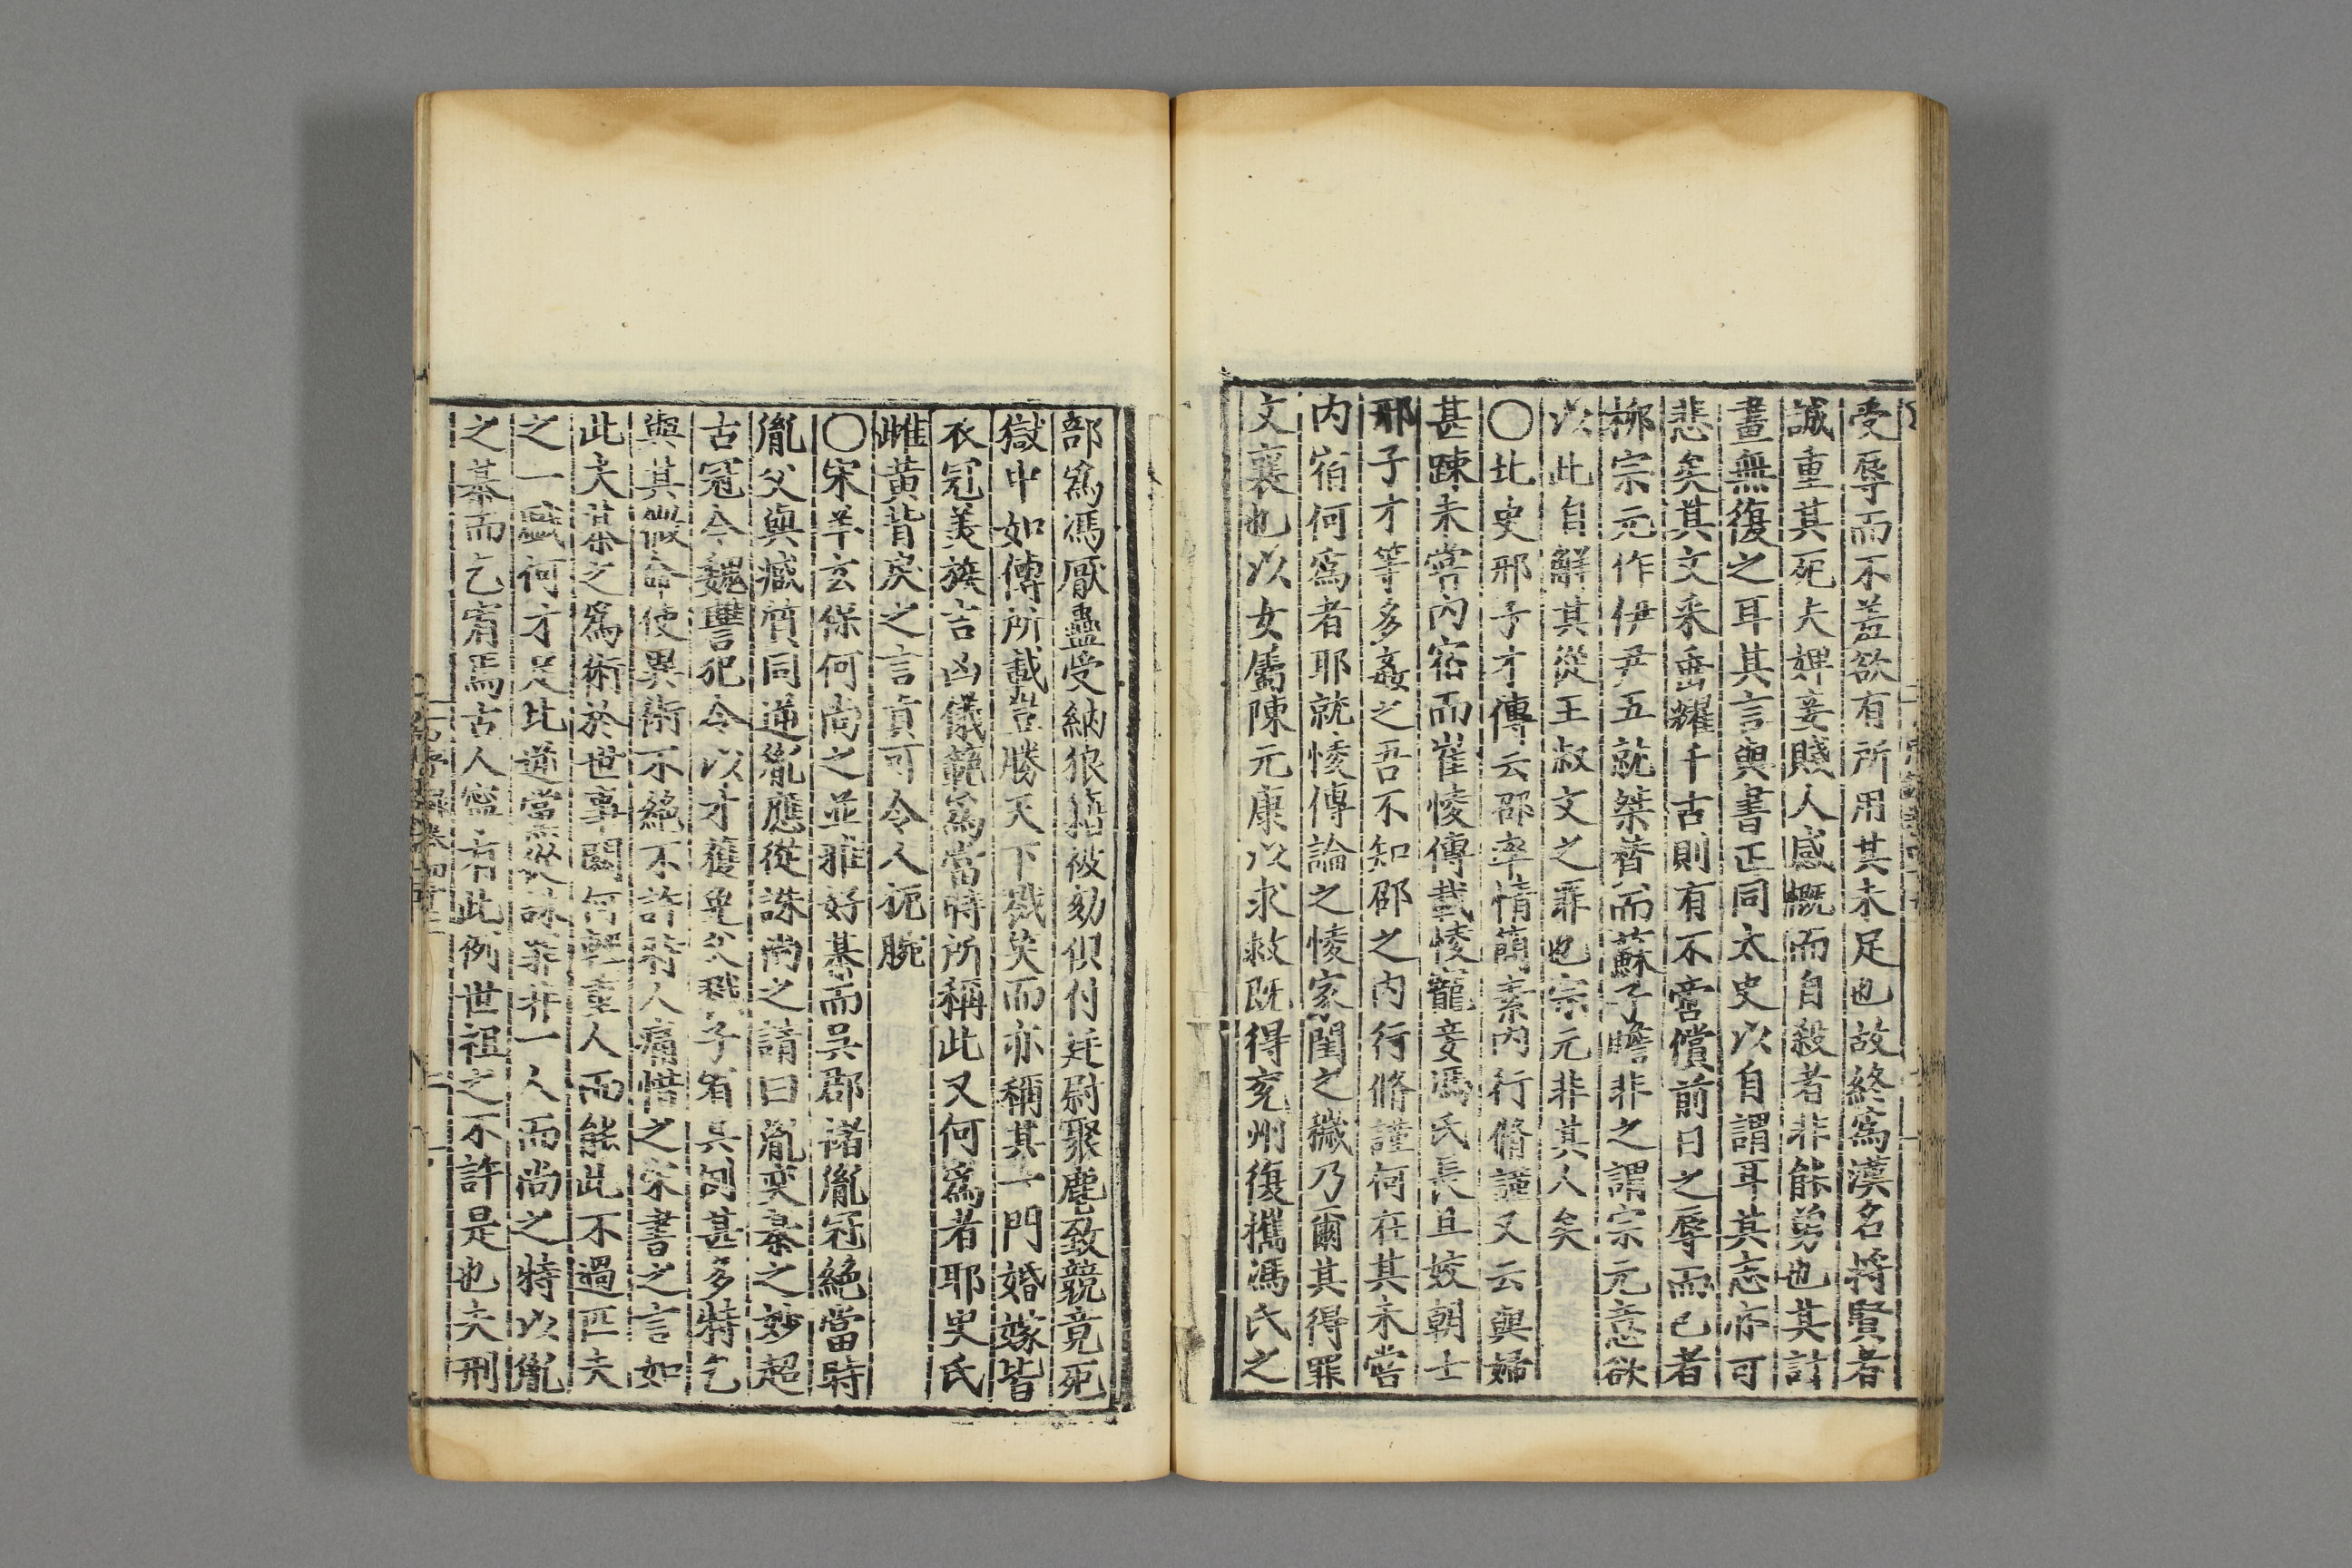 受辱而不羞欲有所用其未足也故終爲漢名將賢者
誠重其死夫婢妾賤人感慨而自殺者非能勇也其計
畫無復之耳其言與書正同太史以自謂耳其志亦可
悲矣其文采垂耀千古則有不啻償前日之辱而已者
柳宗元作伊尹五就桀贊而蘇子瞻非之謂宗元意欲
以此自解其從王叔文之罪也宗元非其人矣
〇北史邢子才傳云邵率情簡素内行脩謹又云與婦
甚踈未嘗内宿而崔㥄傳載㥄寵妾馮氏長且姣朝士
邢子才等多姦之吾不知邵之内行脩謹何在其未嘗
内宿何爲者耶就㥄傳論之㥄家閨之穢乃爾其得罪
文襄也以女屬陳元康以求救既得兖州復攜馮氏之
部爲馮厭蠱受納狼藉被劾俱付廷尉聚麀致競竟死
獄中如傳所載豈勝天下戮矣而亦稱其一門婚嫁皆
衣冠美族吉凶儀範爲當時所稱此又何爲者耶史氏
雌黄背戾之言真可令人扼腕
〇宋羊玄保何尚之並雅好棊而吳郡褚胤冠絶當時
胤父與臧質同逆胤應從誅尚之請曰胤奕棊之妙超
古冠今魏犨犯令以才獲免父戮子宥其例甚多特乞
與其微命使異術不絶不許時人痛惜之宋書之言如
此夫棊之爲術於世事關何輕重人而能此不過匹夫
之一藝何才足比逆當從誅罪非一人而尚之特以胤
之棊而乞宥焉古人寧有此例世祖之不許是也夫刑